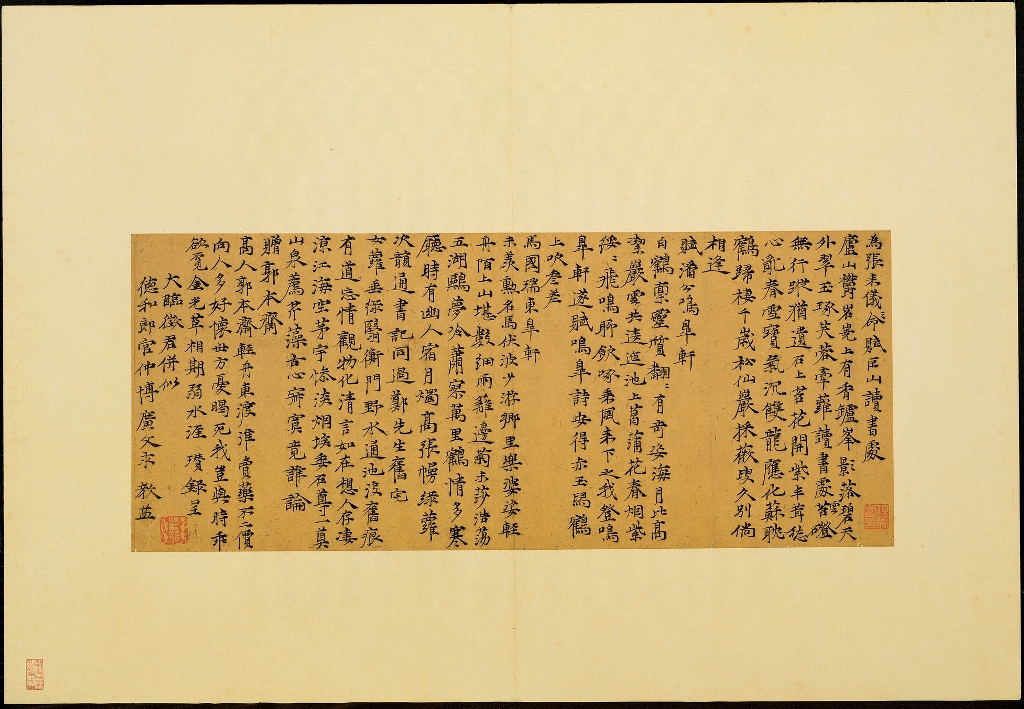 為張來儀僉憲賦匡山讀書處
廬山鬱岩嶤上有香鑪峯影落碧天
外翠玉琢芙蓉牽蘿讀書處苔磴
無行蹤猶遺石上苔花開紫丰茸
心亂春雪寶氣沉雙龍應化蘇耽
鶴歸棲千歲松仙嚴採薇山久別倘
相逢
賦潘公鳴皐軒
白鶴稟靈質翩〻有奇姿海月比高
潔巖雲共透迤池上菖蒲花春烟紫
緌〻飛鳴聊飲啄乘風來下之我登鳴
皐軒遂賦鳴皐詩安得亦玉局鶴
上吹參差
馬國瑞東皐軒
未羨勲名馬伏波少游鄉里樂婆娑輕
舟陌上山堪數細雨籬邊菊未莎浩蕩
五湖鷗夢冷蕭寥萬里鶴情多寒
廳時有幽人宿月燭高張幔綠蘿
次韻通書記同過鄭先生舊宅
女蘿垂綠翳衡門野水通池沒舊痕
有道忘情觀物化清言如在想人存凄
涼江海空茅宇慘淡烟埃委石尊一真
山泉薦芹藻古心寂寞竟誰論
贈郭本齋
高人郭本齋輕舟東渡淮賣藥不二價
向人多好懷世方憂暍死我豈與時乖
欲覔金光草相期弱水涯 璞錄呈
大臨徵君併似
德和郎官仲博廣文求 教益